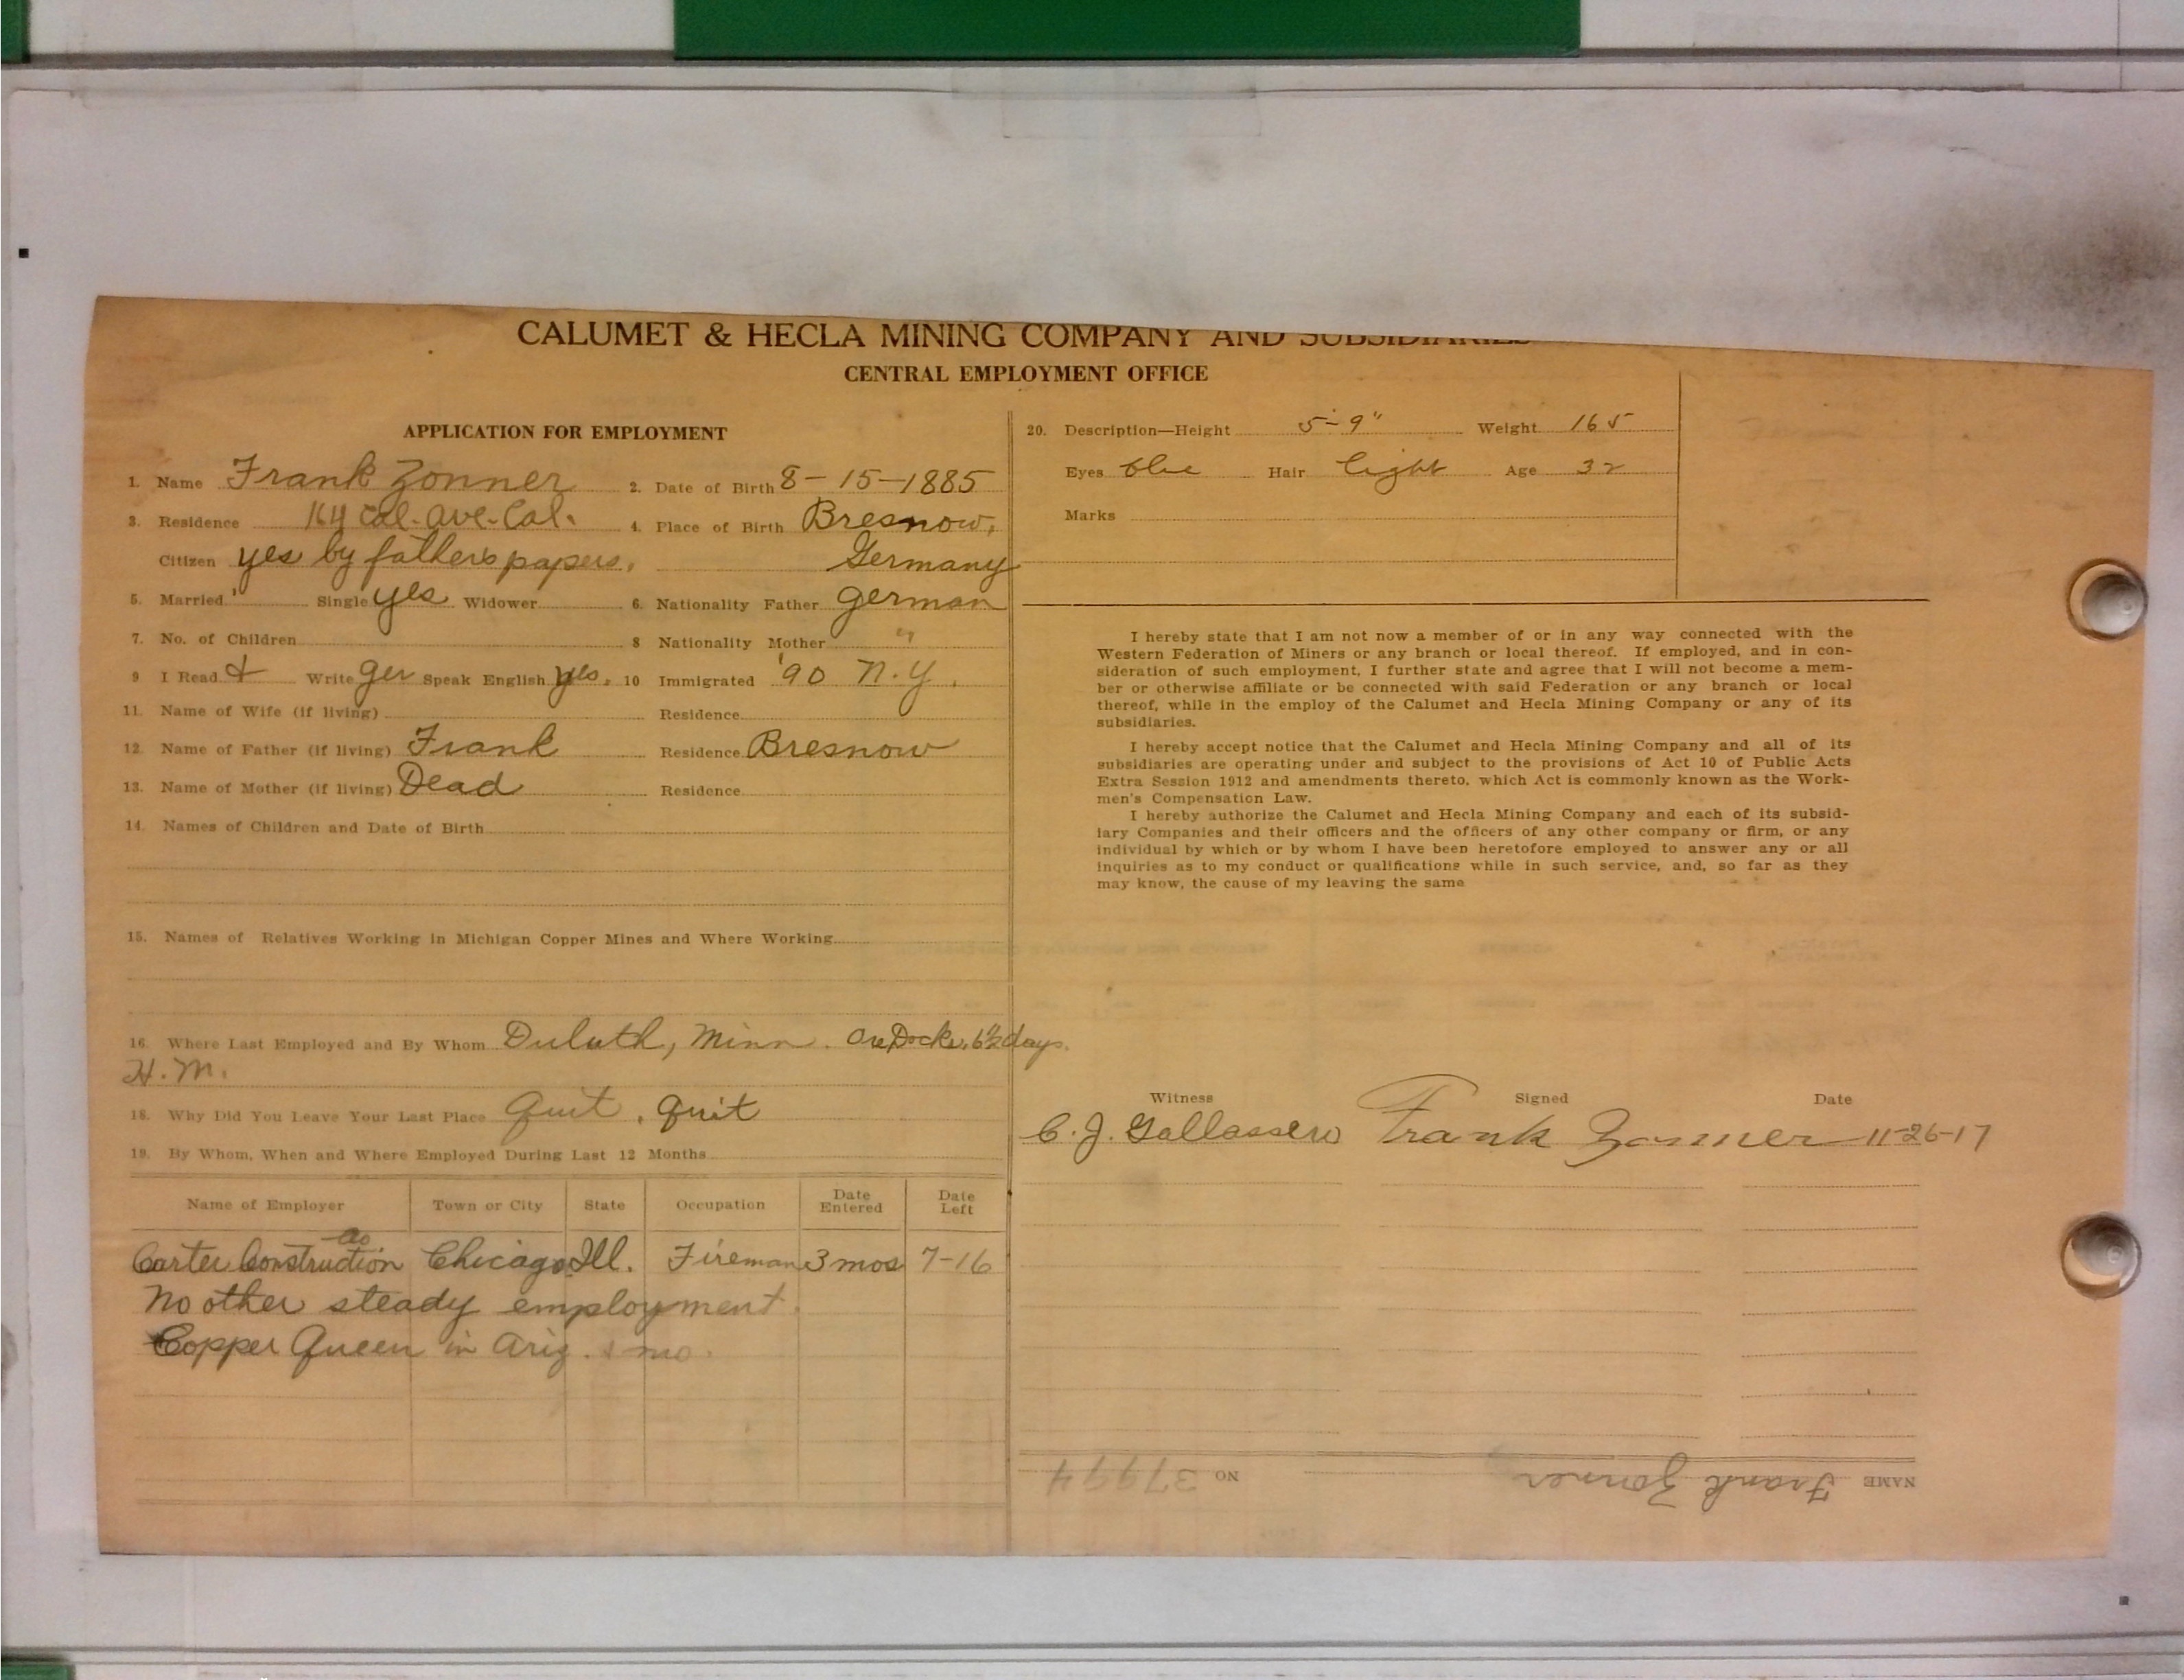 CALUMET & HECLA MINING COMPANY AND SUBSIDIARIES
CENTRAL EMPLOYMENT OFFICE
APPLICATION FOR EMPLOYMENT
1. Name Frank Zonner 2. Date of Birth 8-15-1885
3. Residence Cal. Ave. Cal. 4. Place of Birth Bresnow,
Citizen yes by father's papers. Germany
5. Married Single yes Widower 6. Nationality Father German
7. No. of Children 8 Nationality Mother "
9 I Read & Write Ger Speak English yes. 10 Immigrated '90 N.Y.
11. Name of Wife (if living) Residence
12. Name of Father (if living) Frank Residence Bresnow
13. Name of Mother (if living) Dead Residence
14. Names of Children and Date of Birth
15. Names of Relatives Working in Michigan Copper Mines and Where Working
16. Where Last Employed and By Whom Duluth, Minn. Ore Docks. 6½ days.
H.M.
18. Why Did You Leave Your Last Place Quit, Quit
19. By Whom, When and Where Employed During Last 12 Months
Name of Employer Town or City State Occupation Date Entered Date Left
Carter Construction Co Chicago Ill. Fireman 3 mos 7-16
No other steady employment.
Copper Queen in Ariz. mo.
20. Description—Height 5-9" Weight 165
Eyes blue Hair light Age 32
Marks
I hereby state that I am not now a member of or in any way connected with the
Western Federation of Miners or any branch or local thereof. If employed, and in con-
sideration of such employment, I further state and agree that I will not become a mem-
ber or otherwise affiliate or be connected with said Federation or any branch or local
thereof, while in the employ of the Calumet and Hecla Mining Company or any of its
subsidiaries.
I hereby accept notice that the Calumet and Hecla Mining Company and all of its
subsidiaries are operating under and subject to the provisions of Act 10 of Public Acts
Extra Session 1912 and amendments thereto, which Act is commonly known as the Work-
men's Compensation Law.
I hereby authorize the Calumet and Hecla Mining Company and each of its subsid-
iary Companies and their officers and the officers of any other company or firm, or any
individual by which or by whom I have been heretofore employed to answer any or all
inquiries as to my conduct or qualifications while in such service, and, so far as they
may know, the cause of my leaving the same
Witness Signed Date
C. J. Gallassero Frank Zonner 11-26-17
NAME Frank Zonner NO 37994